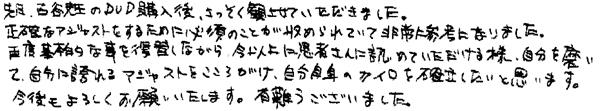 先日、古谷先生のDVD購入後、さっそく観させていただきました。
正確なアジャストをするために必須のことが収められていて非常に参考になりました。
再度基本的な事を復習しながら、今以上に患者さんに認めていただける様、自分を磨い
て、自分に誇れるアジャストをこころがけ、自分自身のカイロを確立したいと思います。
今後もよろしくお願いいたします。有難うございました。